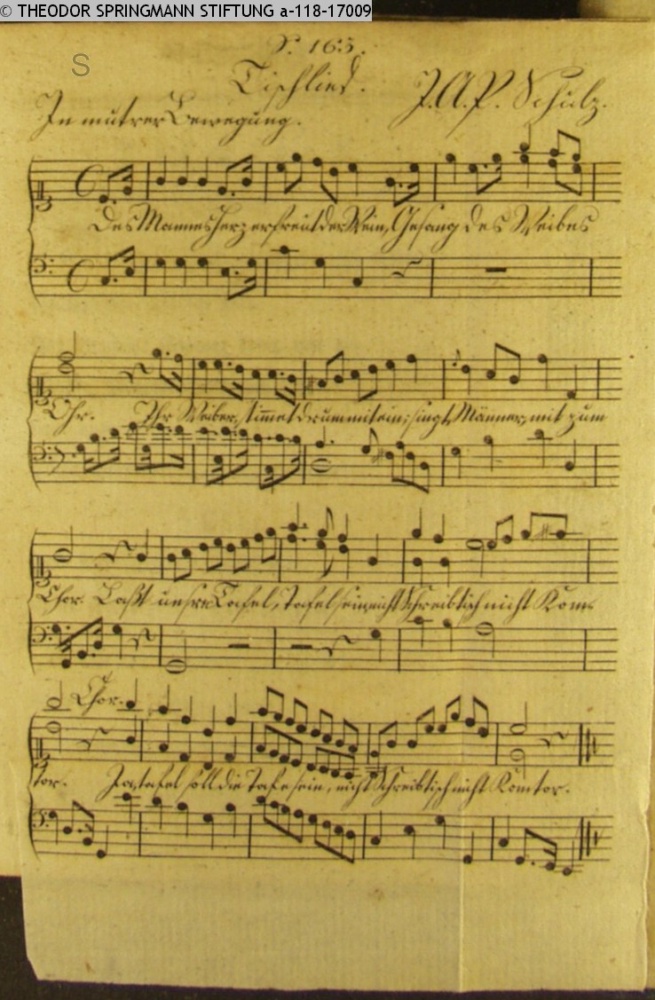 © THEODOR SPRINGMANN STIFTUNG a-118-17009
S. 163.
S
Tischlied. J. A. P. Schulz.
In muntrer Bewegung.
Des Mannes Herz erfreut der Wein, Gesang des Weibes
Ohr. Ihr Weiber, stimmet drum mit ein; singt, Männer, mit zum
Chor. Laßt unsre Tafel, Tafel sein, nicht Schreibtisch nicht Kom-
Chor.
tor. Ja, tafel soll die Tafel sein, nicht Schreibtisch nicht Komtor.